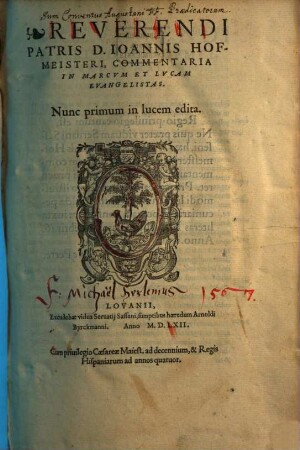 Sum Conventus Augustani Prædicatorum
REVERENDI
PATRIS D. IOANNIS HOF-
MEISTERI, COMMENTARIA
IN MARCVM ET LVCAM
EVANGELISTAS.
Nunc primum in lucem edita.
F. Michaël 156
LOVANII,
Excudebat vidua Seruatij Sasseni, sumptibus hæredum Arnoldi
Byrckmanni. Anno M. D. LXII.
Cum priuilegio Cæsareæ Maiest. ad decennium, & Regis
Hispaniarum ad annos quatuor.